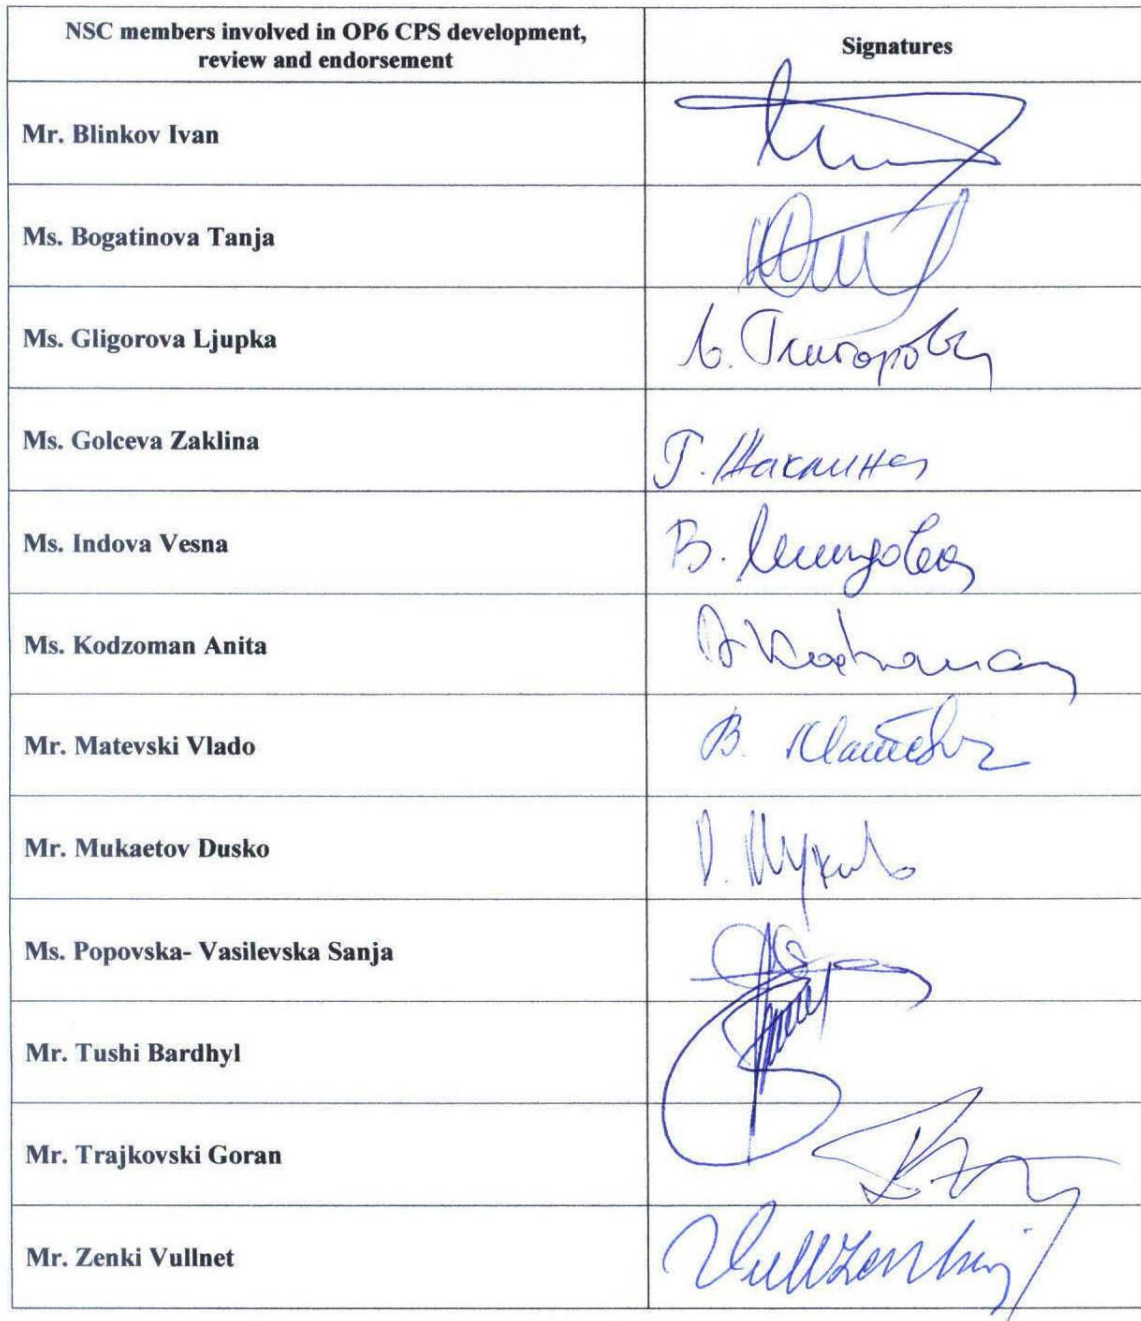 NSC members involved in OP6 CPS development,
review and endorsement
Signatures
Mr. Blinkov Ivan
Ms. Bogatinova Tanja
Ms. Gligorova Ljupka
Љ. Глигорова
Ms. Golceva Zaklina
Г. Жаклина
Ms. Indova Vesna
В. Индова
Ms. Kodzoman Anita
A Kodzoman
Mr. Matevski Vlado
В. Матевски
Mr. Mukaetov Dusko
Ms. Popovska- Vasilevska Sanja
Mr. Tushi Bardhyl
Mr. Trajkovski Goran
Mr. Zenki Vullnet